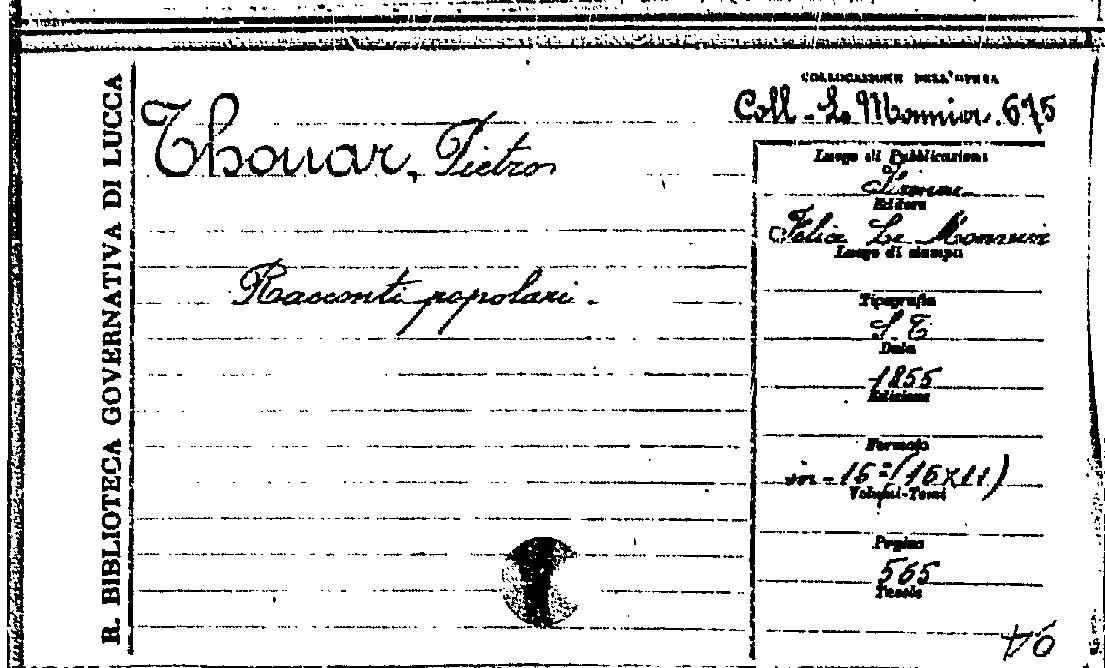 R. BIBLIOTECA GOVERNATIVA DI LUCCA
COLLOCAZIONE DELL'OPERA
Coll - Le Monnier. 675
Thouar, Pietro
Racconti popolari.
Luogo di Pubblicazione
Firenze
Editore
Felice Le Monnier
Luogo di stampa
Tipografia
S. T.
Data
1855
Edizione
Formato
in-16=(16x11)
Volumi-Tomi
Pagine
565
Tavole